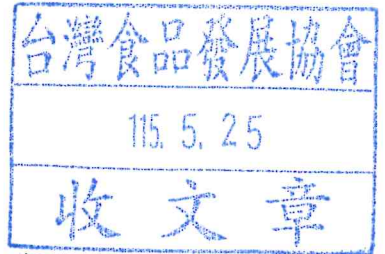 台灣食品發展協會
115. 5. 25
收文章